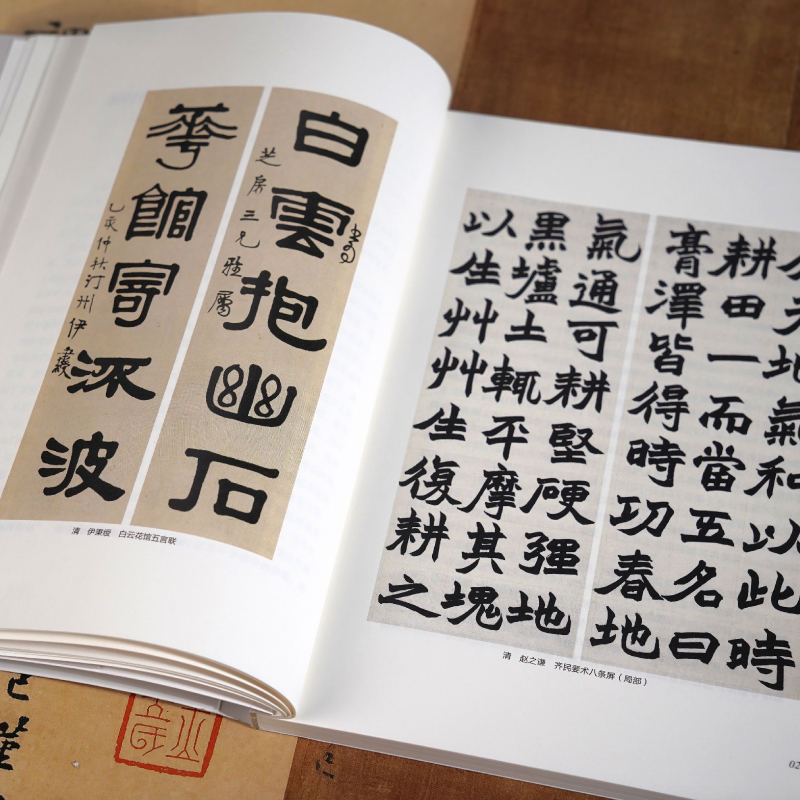 白雲抱幽石
芝房三兄雅屬
華館寄㳅波
乙亥仲秋汀州伊秉綬
清 伊秉绶 白云花馆五言联
天地氣和以此時
耕田一而當五名曰
膏澤皆得時功春地
氣通可耕堅硬強地
黑壚土輒平摩其塊
以生艸艸生復耕之
清 赵之谦 齐民要术八条屏（局部）